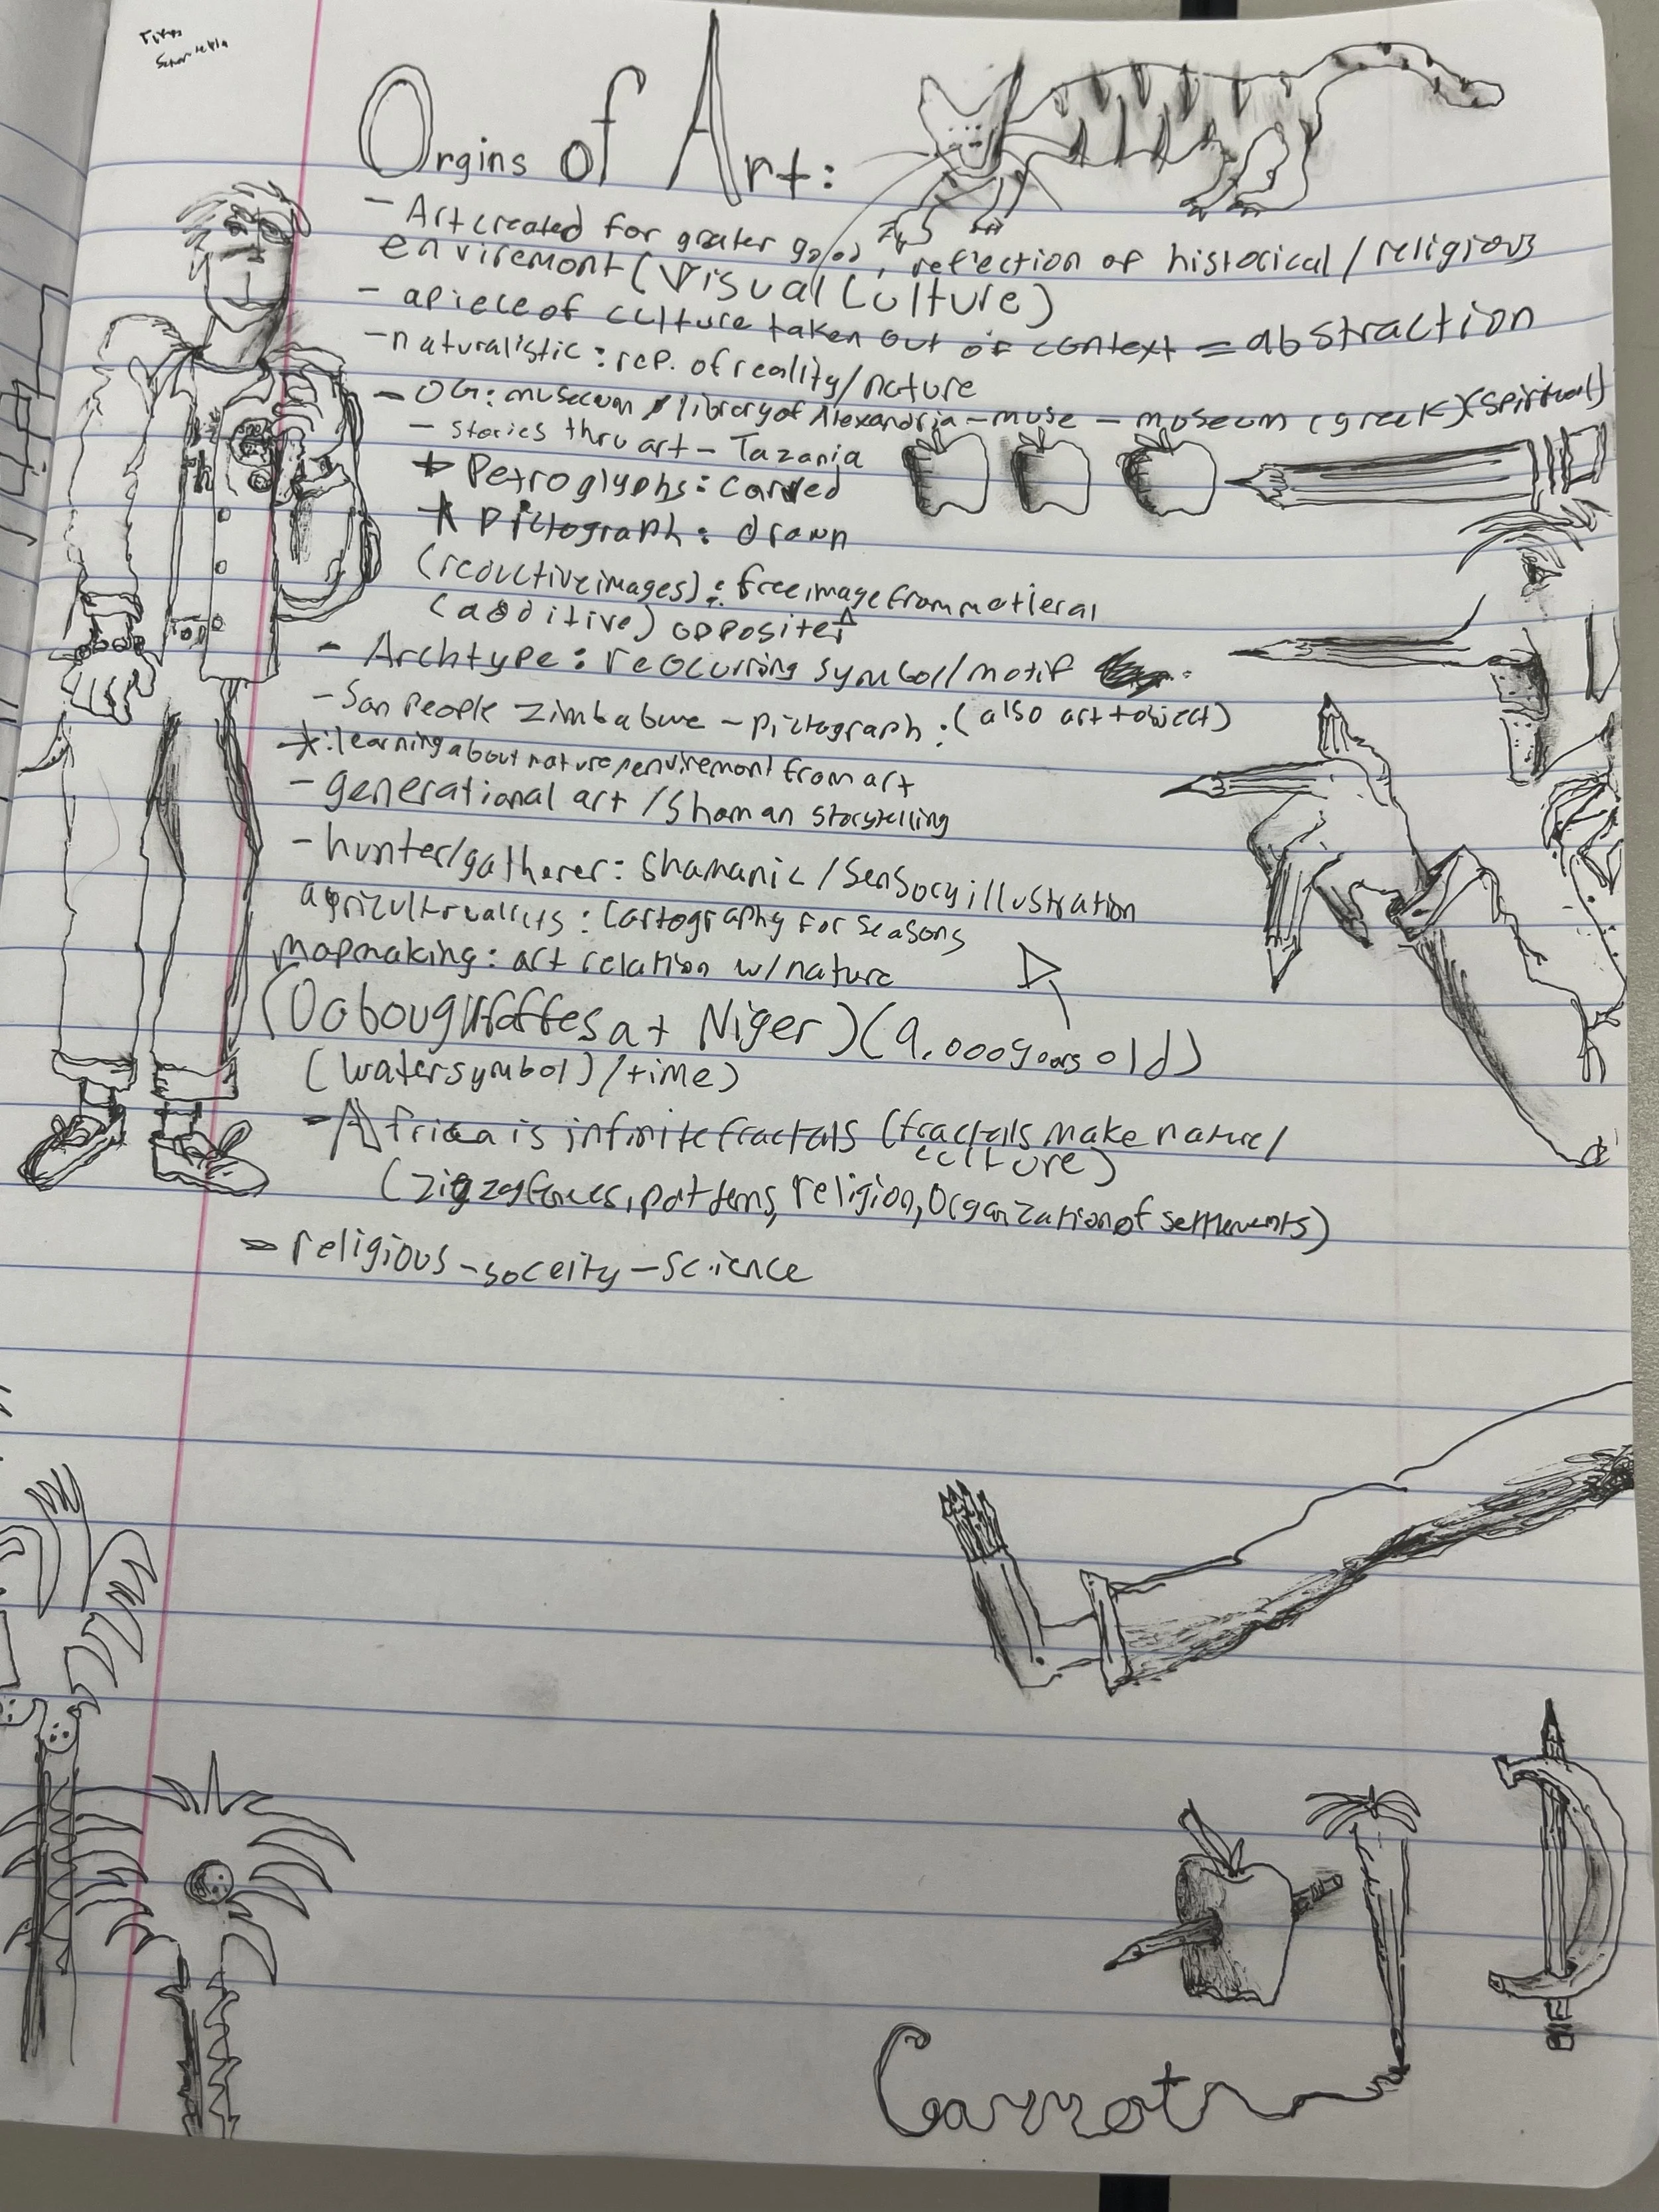 Orgins of Art:
- Art created for grater good, reflection of historical / religious
enviremont (Visual Culture)
- a piece of culture taken out of context = abstraction
- naturalistic : rep. of reality/nature
- OG: museum library of Alexandria - muse - museum (greek) (spiritual)
- stories thru art - Tazania
* Petroglyphs: carved
* pictograph: drawn
(reductive images) : free image from matieral
(additive) opposite ↑
- Archtype: reocurring symbol/motif
- San People Zimbabwe - pictograph : (also art + object)
* : learning about nature/envirement from art
- generational art / shaman storytelling
- hunter/gatherer: shamanic / sensory illustration
: cartography for seasons
mapmaking: art relation w/ nature
(Dabou giraffes at Niger) (9,000 years old)
(water symbol) / time)
- Africa is infinite fractals (fractals make nature/
culture)
(zigzag fences, patterns, religion, organization of settlements)
- religious - soceity - science
Carrot